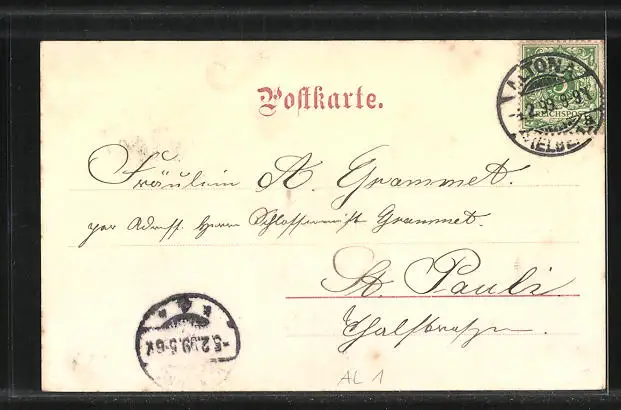 Postkarte.
ALTONA
5
REICHSPOST
(ELBE)
Fräulein A. Grammet.
per Adress. Herrn Schlossermstr Grammet.
St. Pauli.
Thalstrasse.
-5.2.99.5-6N.
AL 1